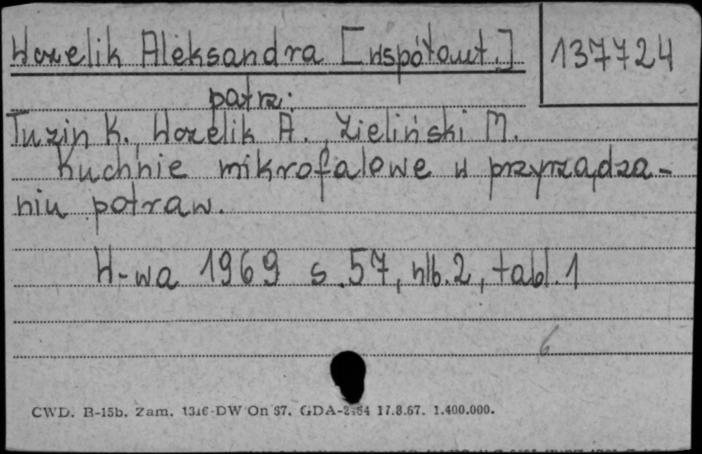 Wozelik Aleksandra [współaut.]
137724
patrz:
Tuzin K., Wozelik A., Zieliński M.
Kuchnie mikrofalowe w przyrządza-
niu potraw.
W-wa 1969 s.57, nlb.2, tabl.1
6
CWD. B-15b. Zam. DW On 67. GDA- 17.8.67. 1.400.000.